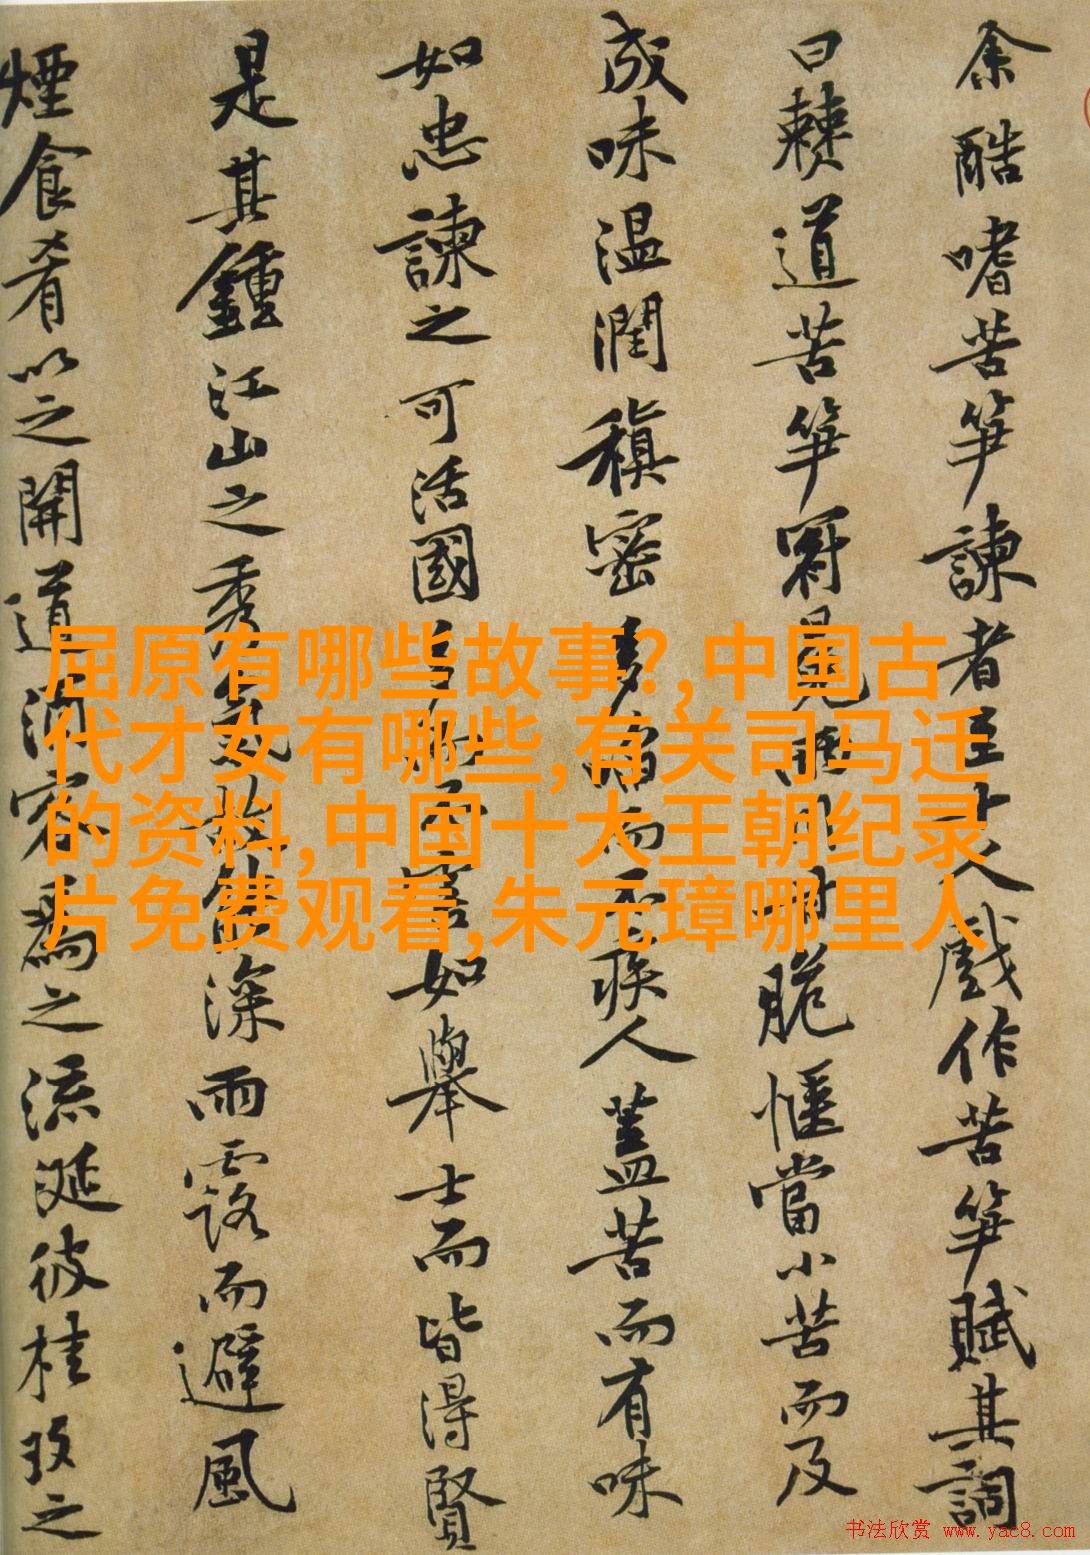 余酷嗜苦笋諫者至十人戲作苦笋賦其詞
曰僰道苦笋冠冕兩川甘脆愜當小苦而及
成味温潤稹密多啗而不疾人蓋苦而有味
如忠諫之可活國多而不害如舉士而皆得賢
是其鍾江山之秀氣故能深雨露而避風
煙食肴以之開道酒客爲之流涎彼桂玫之
屈原有哪些故事?,中国古
代才女有哪些,有关司马迁
的资料,中国十大王朝纪录
片免费观看,朱元璋哪里人
书法欣赏 www.yac8.com